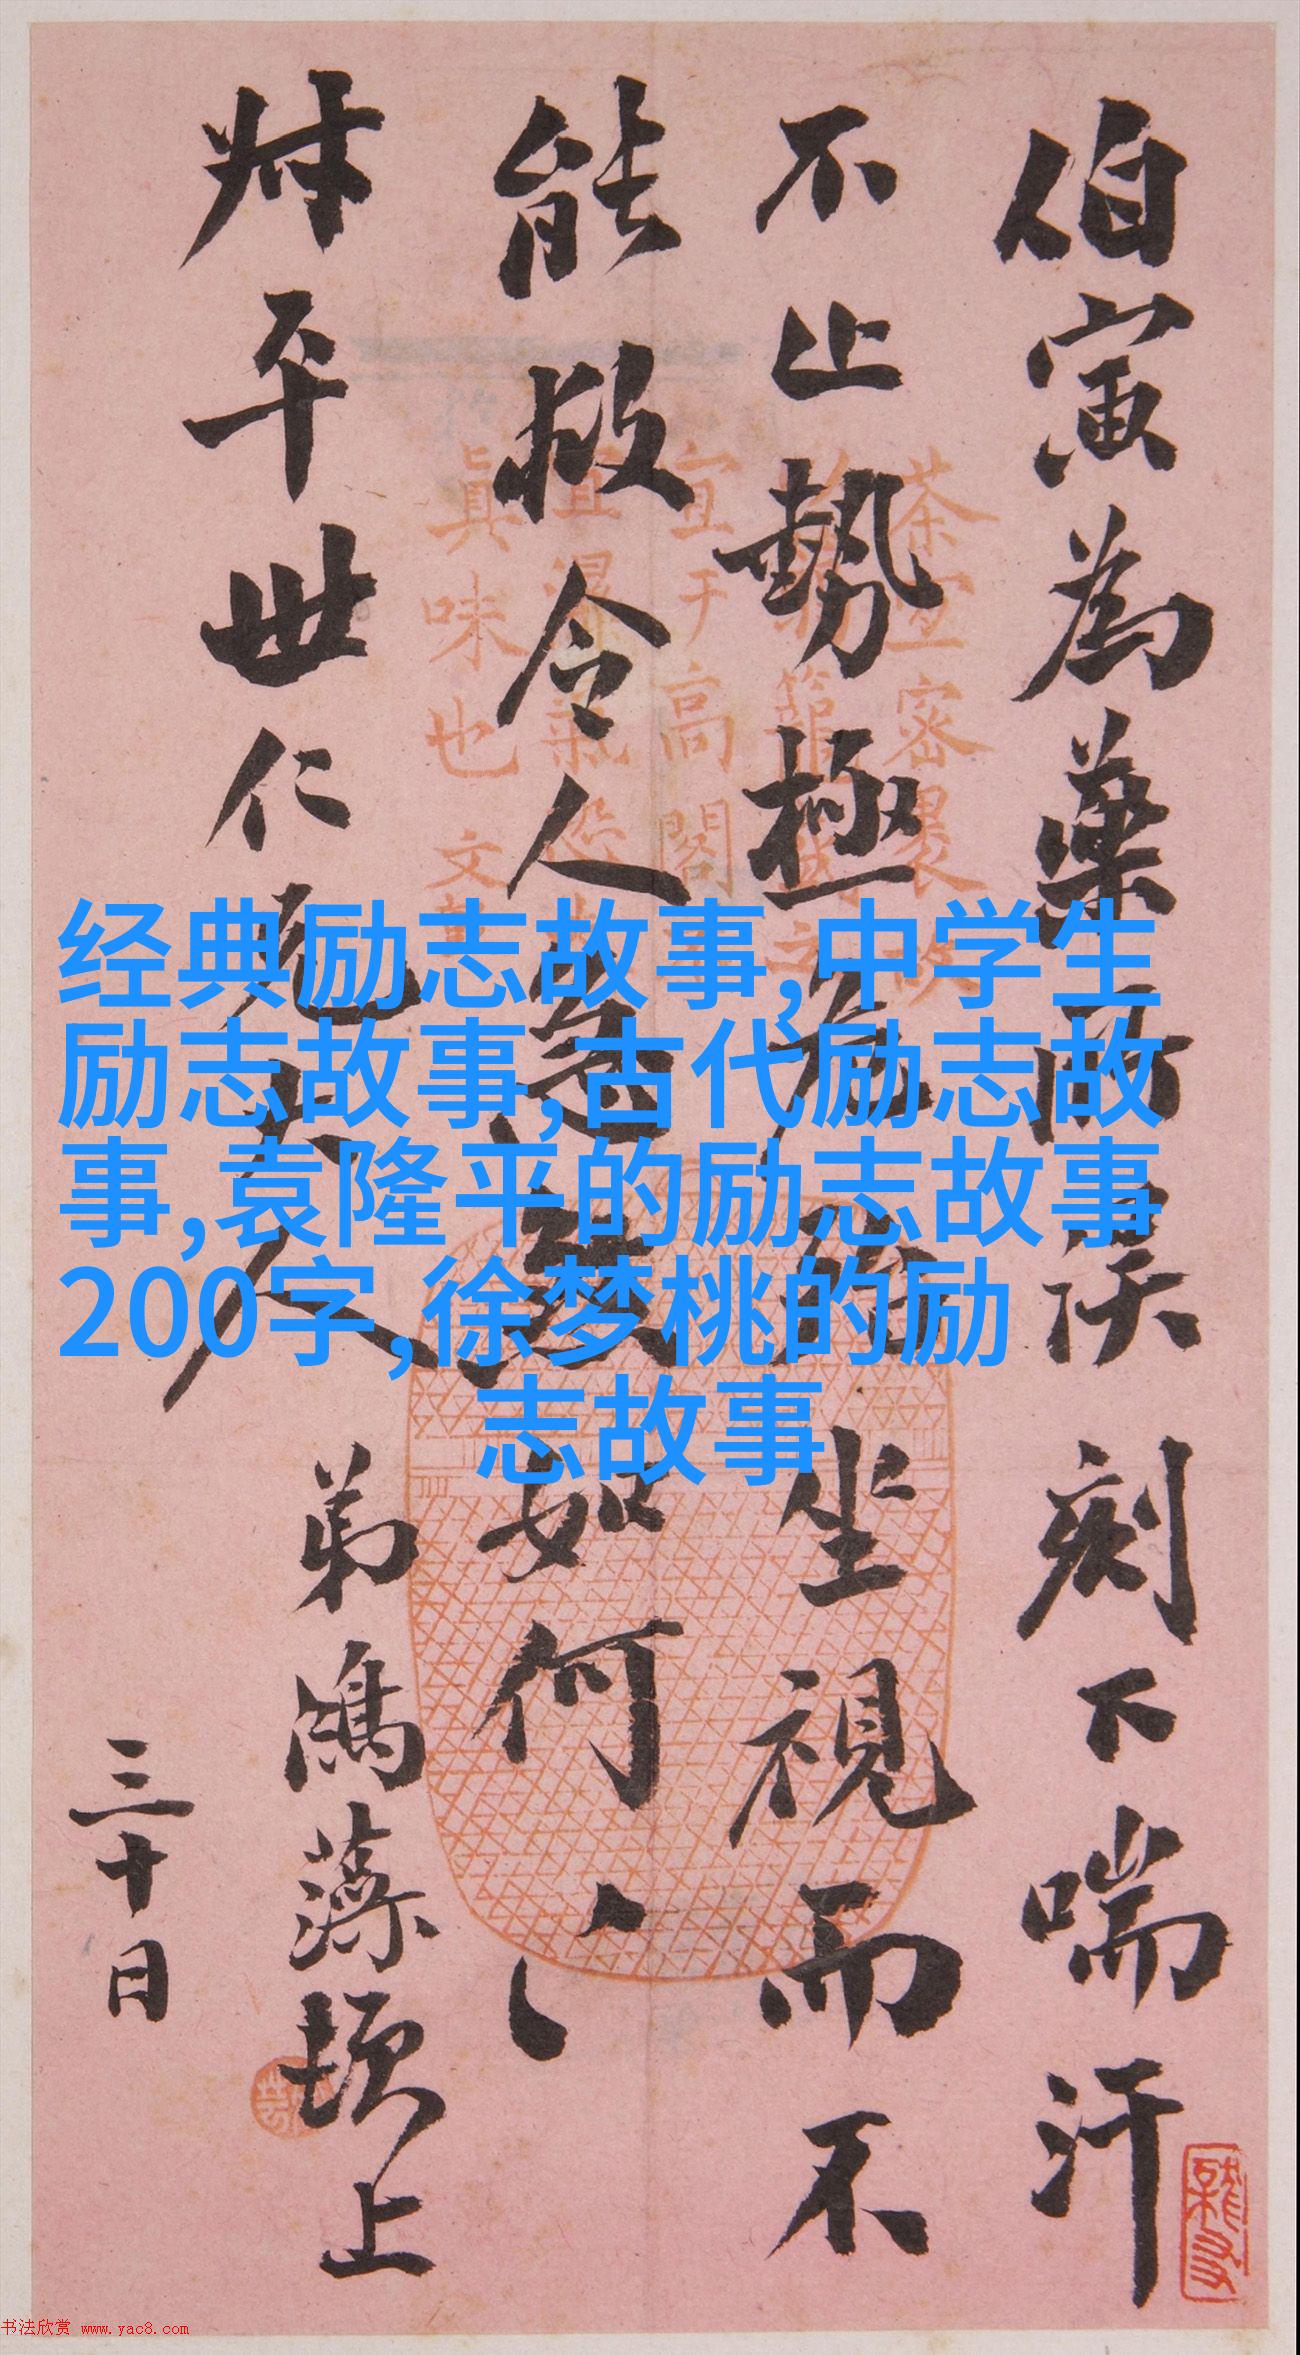 伯寅為藥所誤刻下喘汗
不止勢極危殆坐視而不
能救令人急煞如何〻
叔平世仁兄大人
弟鴻藻頓上
三十日
真味也
经典励志故事,中学生
励志故事,古代励志故
事,袁隆平的励志故事
200字,徐梦桃的励
志故事
书法欣赏 www.yac8.com